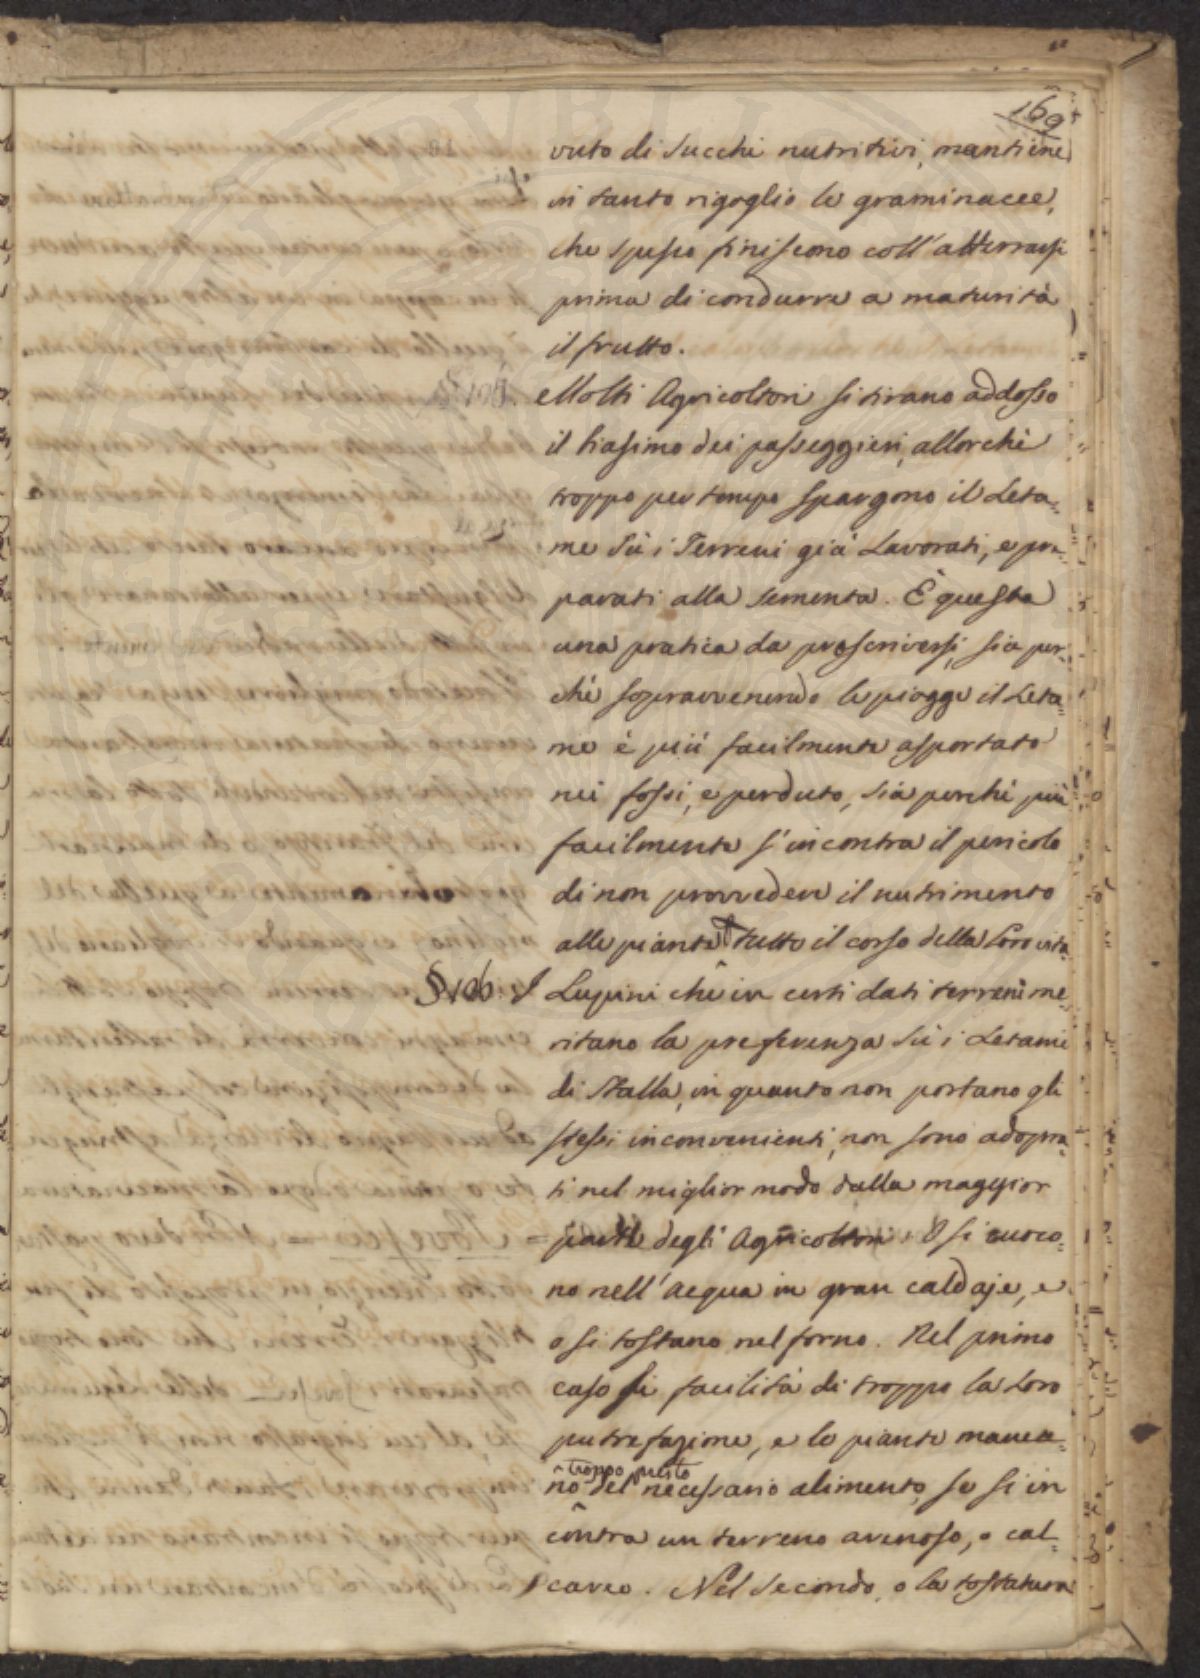 169
vuto di Succhi nutritivi, mantiene
in tanto rigoglio le graminacee,
che spesso finiscono coll'atterrarsi
prima di condurre a maturità
il frutto.
Molti Agricoltori si tirano addosso
il biasimo dei passeggieri, allorchè
troppo per tempo spargono il Leta=
me Sù i Terreni già Lavorati, e pre=
parati alla sementa. È questa
una pratica da proscriversi, sia per=
chè sopravvenendo le piogge il Leta=
me è più facilmente asportato
nei fossi, e perduto, sia perchè più
facilmente s'incontra il pericolo
di non provvedere il nutrimento
alle piante tutto il corso della Loro vita.
§ 106. I Lupini che in certi dati terreni me=
ritano la preferenza Sù i Letami
di Stalla, in quanto non portano gli
stessi inconvenienti, non sono adopra=
ti nel miglior modo dalla maggior
parte degli Agricoltori. O si cuoco=
no nell'Acqua in gran caldaje, e
o si tostano nel forno. Nel primo
caso si facilità di troppo la Loro
putrefazione, e le piante manca=
troppo presto
no del necessario alimento, se si in
contra un terreno arenoso, o cal=
careo. Nel Secondo, o la tostatura